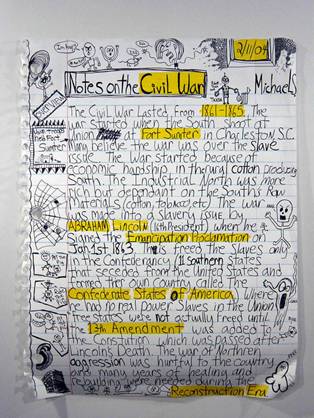 2/11/04
Notes on the Civil War
Michael S
The Civil War Lasted from 1861-1865. The
war started when the South shoot at
Union Fort Sumter in Charleston, S.C.
Many believe the war was over the slave
issue. The War started because of
economic hardship in the rural cotton producing
South. The Industrial North was more
rich but dependant on the South's Raw
Materials (cotton, tobacco, etc). The war
was made into a slavery issue by
ABRAHAM Lincoln (16th President) when he
signed the Emancipation Proclamation on
Jan 1st 1863. This freed the slaves only
in the Confederate (11 Southern states
that seceded from the United States and
formed their own country called the
Confederate States of America, where
he had no real power. Slaves in the Union
free states were not actually freed until
the 13th Amendment was added to
the Constitution which was passed after
Lincoln's Death. The war of Northren
aggression was hurtful to the country
and many years of healing and
rebuilding were needed during the
Reconstruction Era